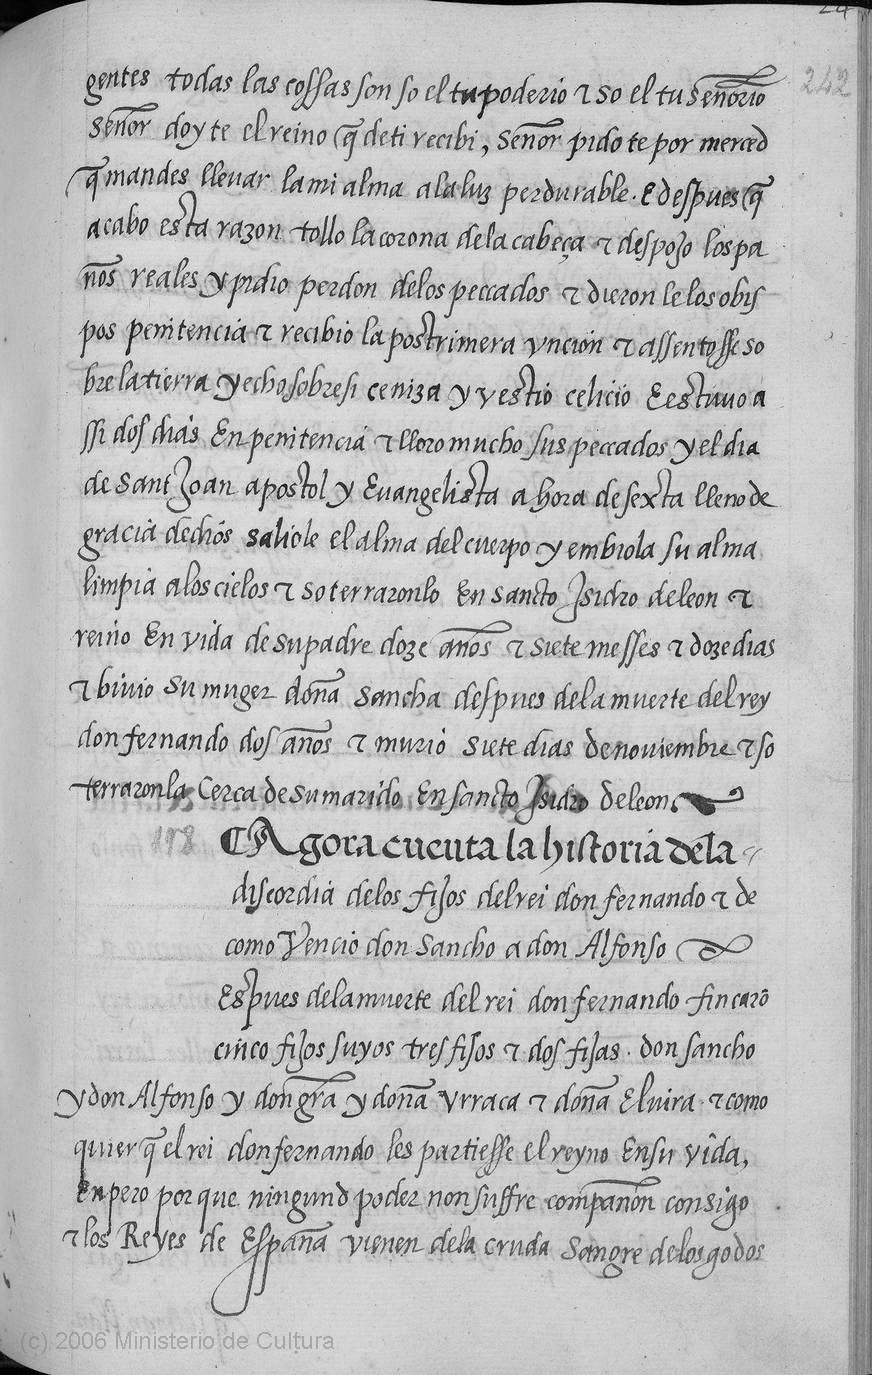 242
gentes todas las cossas son so el tu poderio τ so el tu señorio
señor doy te el reino q̃ de ti recibi, señor pido te por merced
q̃ mandes lleuar la mi alma a la luz perdurable. E despues q̃
acabo esta razon tollo la corona de la cabeça τ despojo los pa
ños reales y pidio perdon delos peccados τ dieron le los obis
pos penitencia τ recibio la postrimera yncion τ assentosse so
bre la tierra y echo sobre si ceniza y vestio celicio E estuuo a
ssi dos dias En penitencia τ lloro mucho sus peccados y el dia
de Sant Joan apostol y Euangelista a hora de sexta lleno de
gracia de dios saliole el alma del cuerpo y embiola su alma
limpia a los cielos τ soterraronlo En sancto Jsidro de leon τ
reino En vida de su padre doze años τ siete messes τ doze dias
τ biuio su muger doña Sancha despues dela muerte del rey
don fernando dos años τ murio siete dias de nouiembre τ so
terraronla Cerca de su marido En sancto Jsidro de leon
178
Agora cuenta la historia dela
discordia delos fijos del rei don fernando τ de
como Vencio don Sancho a don Alfonso
Espues dela muerte del rei don fernando fincarõ
cinco fijos suyos tres fijos τ dos fijas. don sancho
y don Alfonso y don gr̃a y doña Vrraca τ doña Eluira τ como
quier q̃ el rei don fernando les partiesse el reyno En su vida,
Enpero por que ningund poder non suffre compañon consigo
τ los Reyes de España vienen dela cruda sangre delos godos
(c) 2006 Ministerio de Cultura